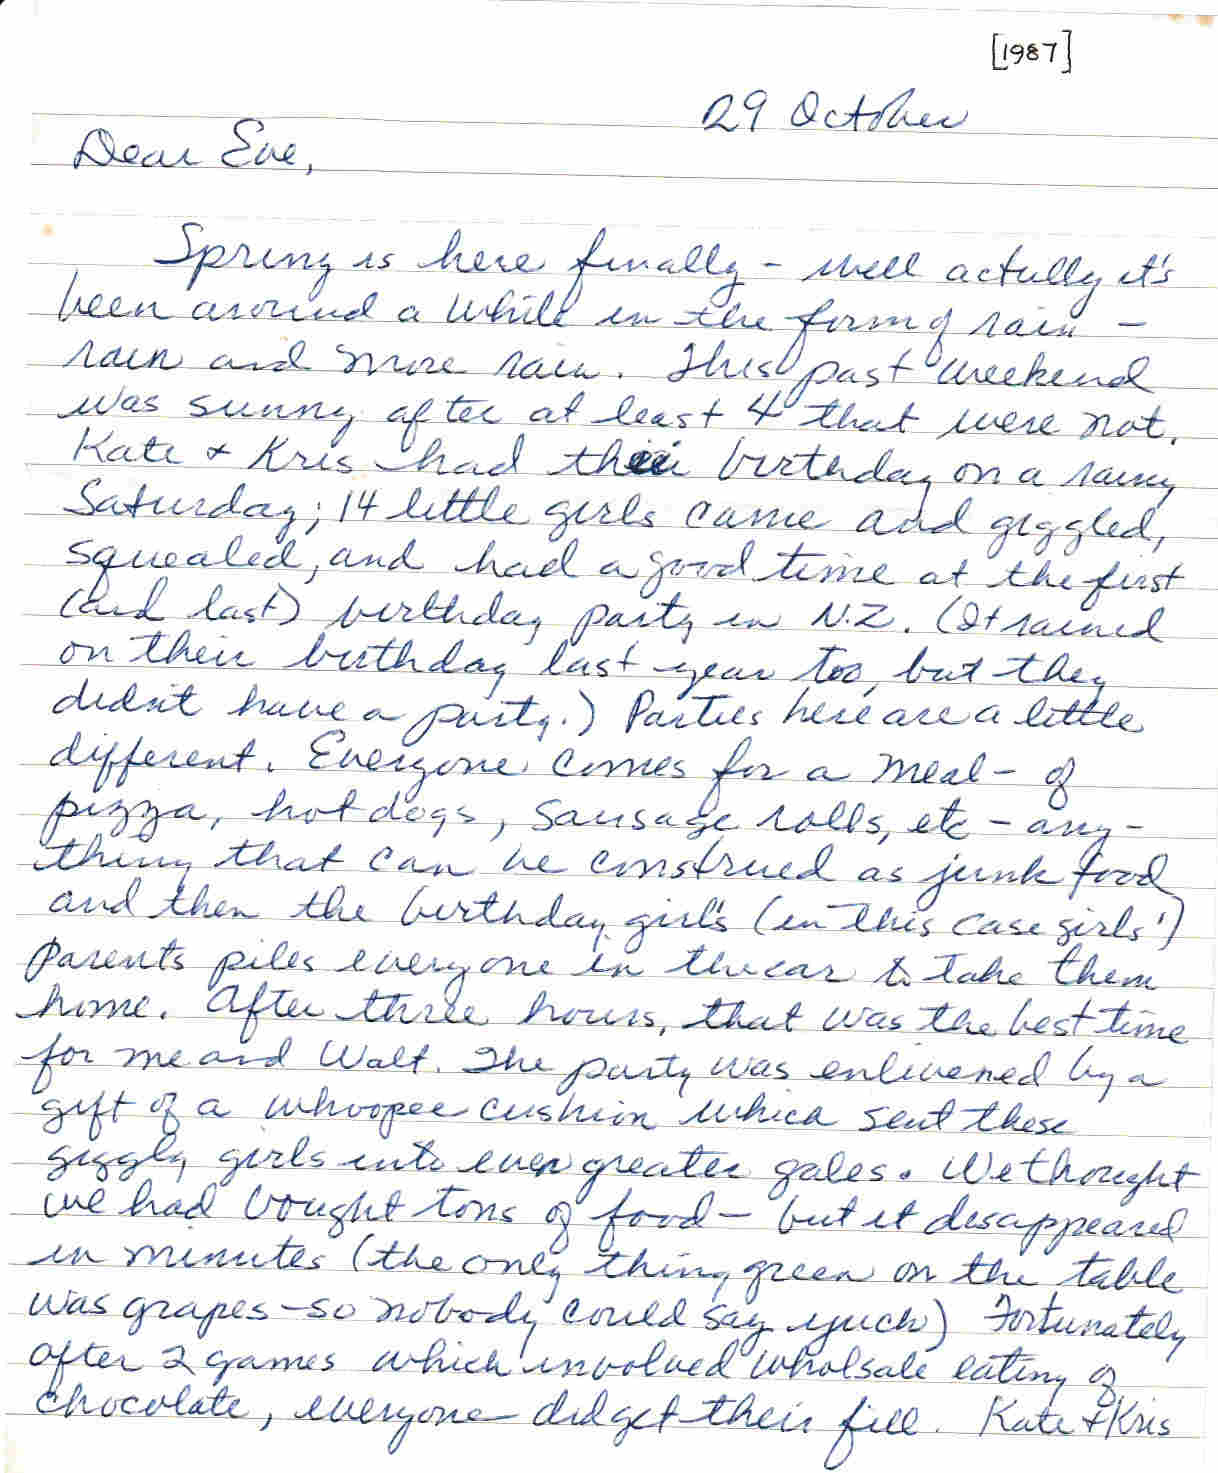 [1987]
29 October
Dear Eve,
Spring is here finally - well actully it's
been around a while in the form of rain -
rain and more rain. This past weekend
was sunny after at least 4 that were not.
Kate + Kris had their birthday on a rainy
Saturday; 14 little girls came and giggled,
squealed, and had a good time at the first
(and last) birthday party in N.Z. (It rained
on their birthday last year too, but they
didn't have a party.) Parties here are a little
different. Everyone comes for a meal - of
pizza, hot dogs, sausage rolls, etc - any-
thing that can be construed as junk food
and then the birthday girl's (in this case girls')
parents piles everyone in the car to take them
home. After three hours, that was the best time
for me and Walt. The party was enlivened by a
gift of a whoopee cushion which sent these
giggly girls into even greater gales. We thought
we had bought tons of food - but it disappeared
in minutes (the only thing green on the table
was grapes - so nobody could say yuch) Fortunately
after 2 games which involved wholsale eating of
chocolate, everyone did get their fill. Kate + Kris